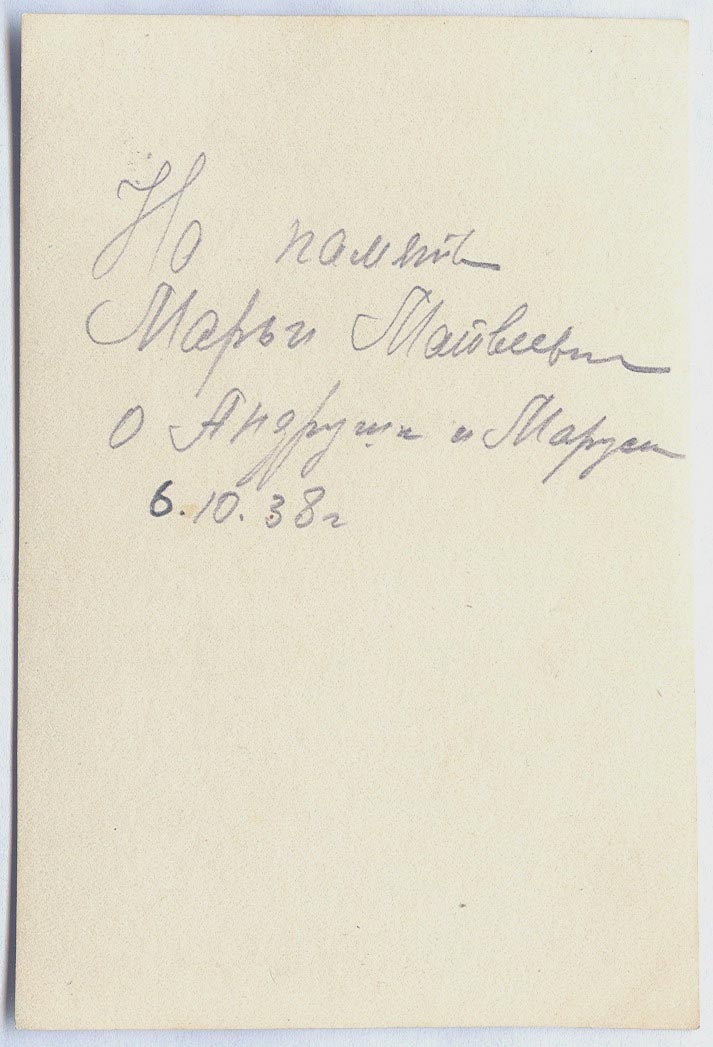 На память
Марьи Матвеевны
о Андруши и Маруси
6.10.38г